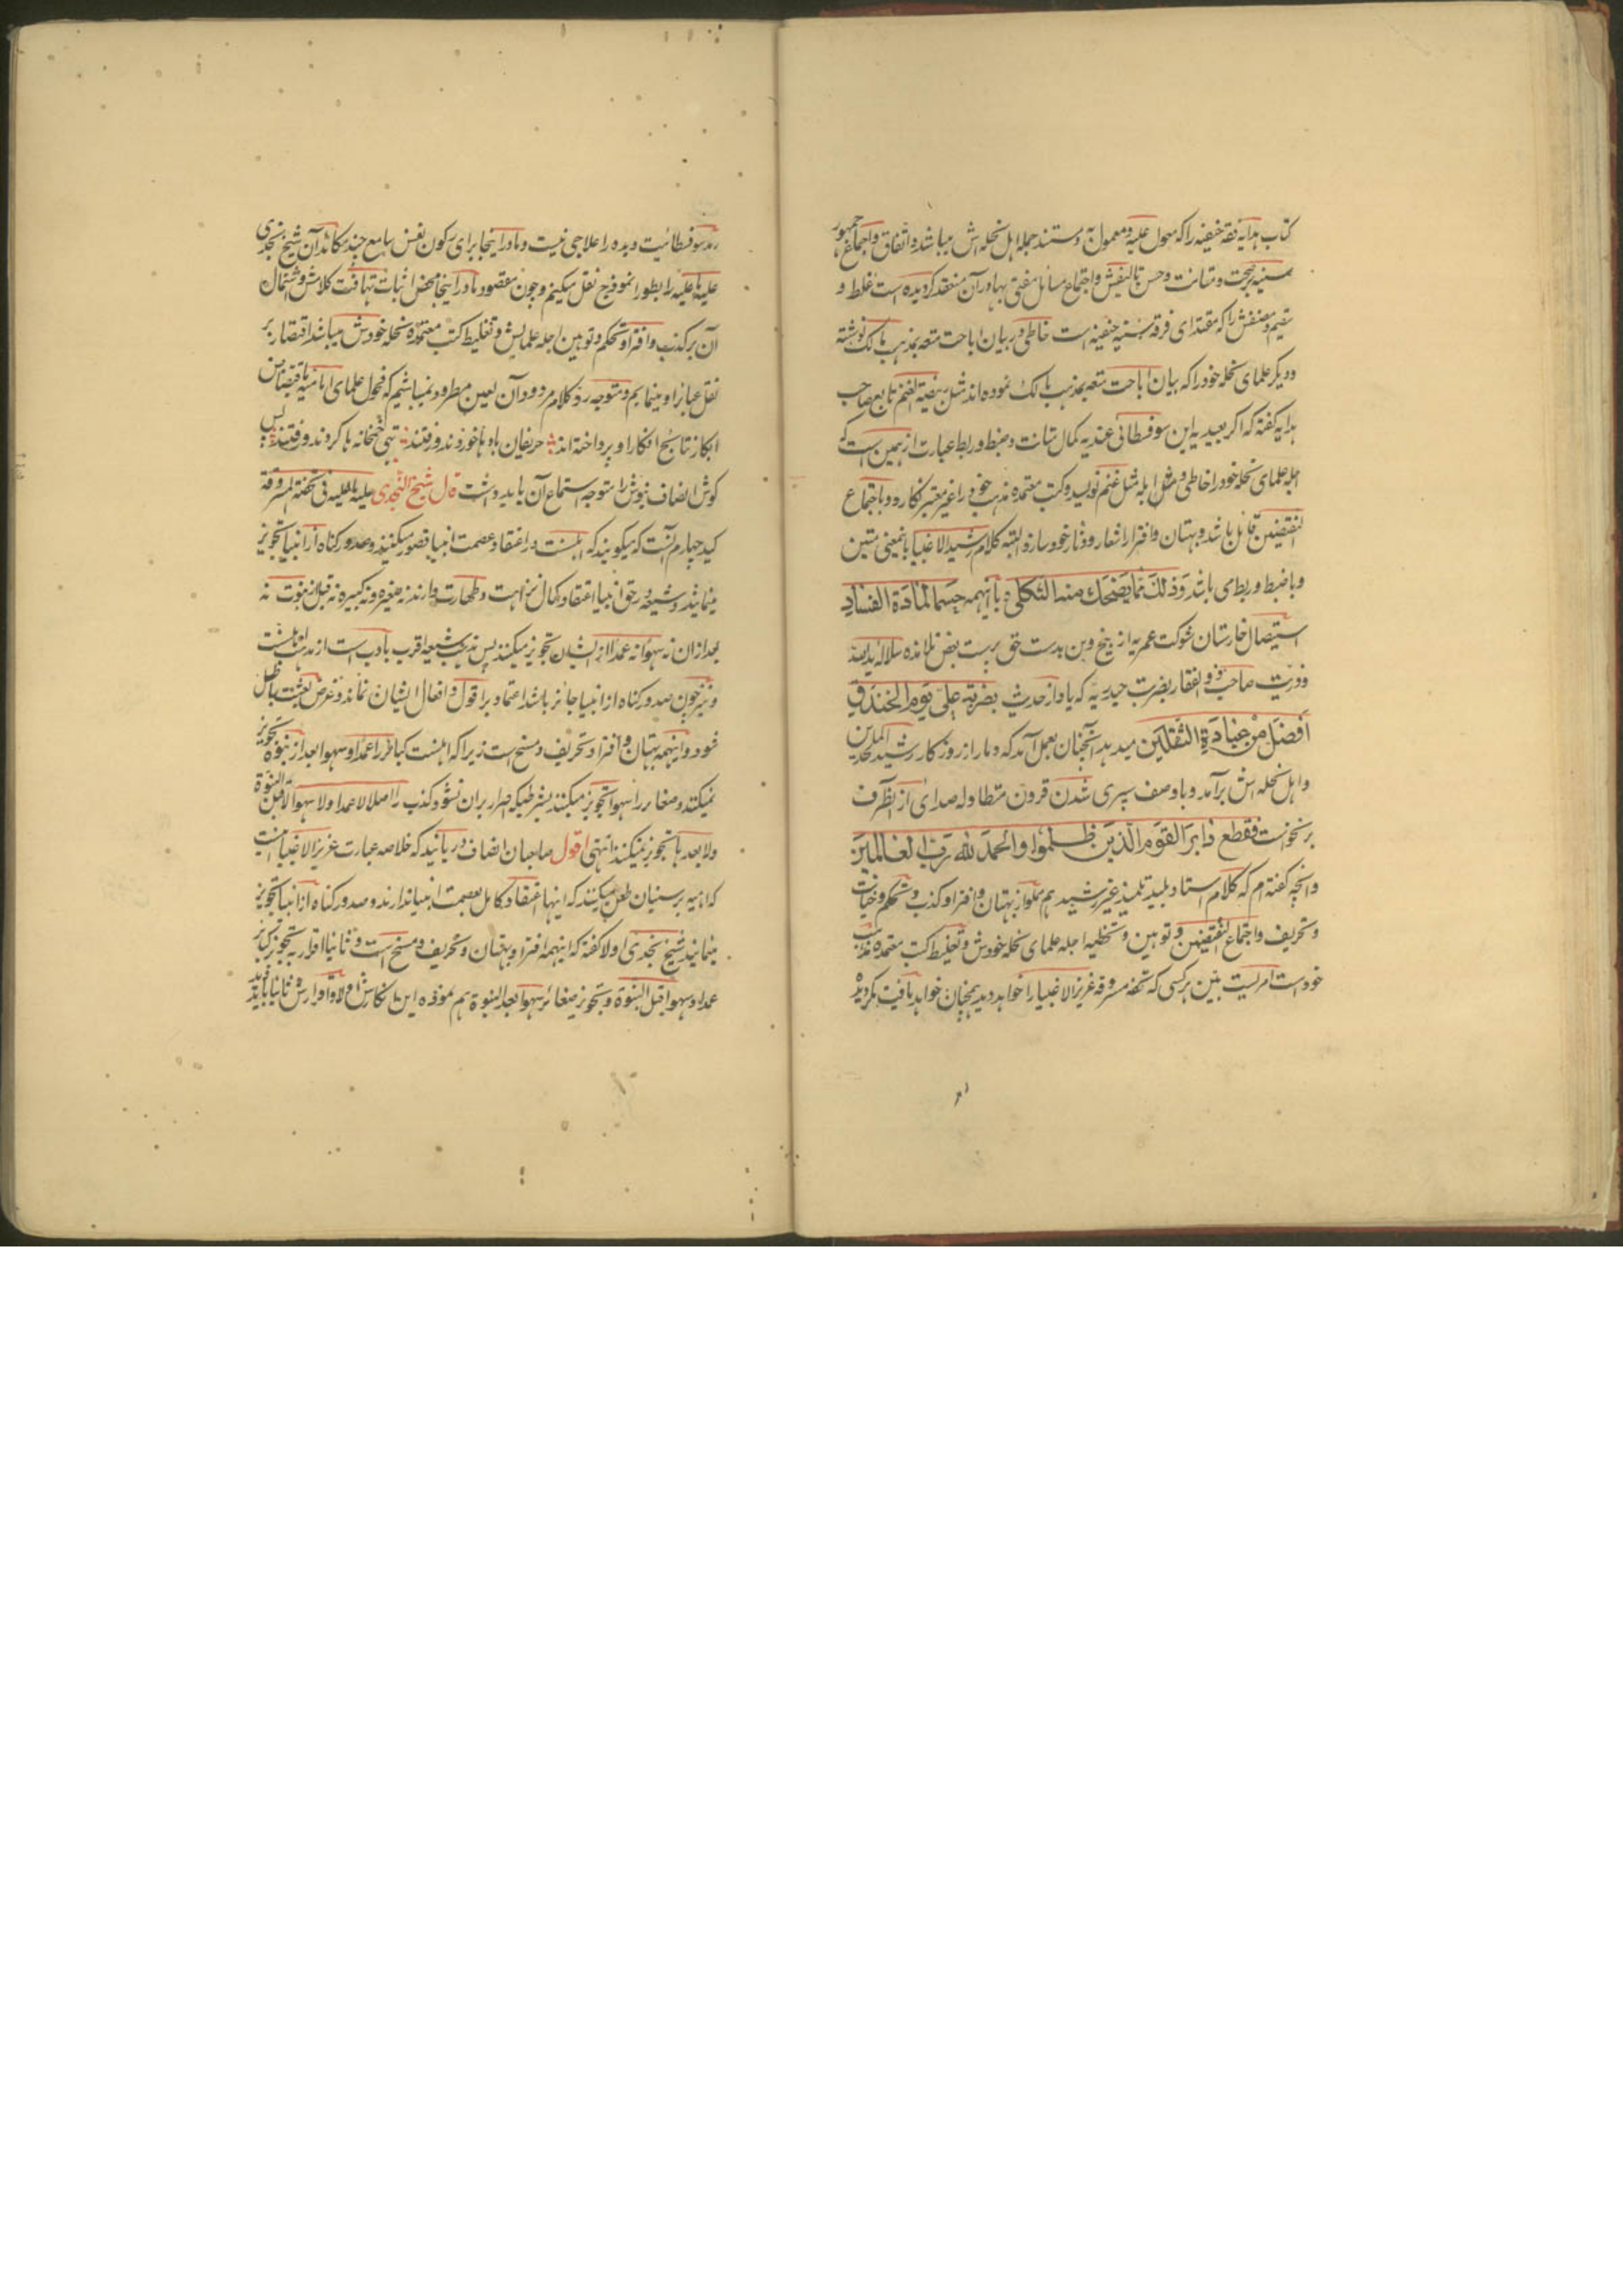 کتاب هدایه فقه حنفیه را که معول علیه و معمول به و مستند جمله اهل نحله اش میباشد و اتفاق و اجماع جمهور
سنیه بر صحت و متانت و حسن تالیفش و اجتماع مسائل مفتی بها در آن منعقد گردیده است غلط و
سقیم و مصنفش را که مقتدای فرقه سنیه حنفیه است خاطی در بیان اباحت متعه بمذهب مالک نوشته
و دیگر علمای نحله خود را که بیان اباحت متعه بمذهب مالک نموده اند مثل ربضیة الغنم تابع صاحب
هدایه گفته که اگر بعیدیه این سوفسطائی عندیه کمال متانت و ضبط و ربط عبارت از همین است که
اجله علمای نحله خود را خاطی و مثل ابله مثل غنم نویسد و کتب معتمده مذهب خود را غیر معتبر نگارد و باجتماع
النقیضین قائل باشد و بهتان و افترا را شعار و دثار خود سازد البته کلام رشید الاغبیا باینمعنی متین
و با ضبط و ربطی باشد وذلک مما یضحک منه الثکلی و بالجمله حسما لمادة الفساد
استیصال خارستان شوکت عمریه از بیخ و بن بدست حق پرست بعض تلامذه سلاله ید الله
و ذریت صاحب ذوالفقار بضرت حیدریه که یاد از حدیث بضربة علی یوم الخندق
افضل من عبادة الثقلین میدهد آنچنان بعمل آمد که دمار از روزگار رشید الملحدین
و اهل نحله اش برآمد و با وصف سپری شدن قرون متطاوله صدای از انطرف
بر نخواست فقطع دابر القوم الذین ظلموا والحمد لله رب العالمین
و آنچه گفته ام که کلام استاد بلید تلمیذ غیر رشید هم مملو از بهتان و افترا و کذب و تحکم و خیانت
و تحریف و اجتماع النقیضین و توهین و تخطیه اجله علمای نحله خودش و تغلیط کتب معتمده مذهب
خود است امریست بین هر کسی که تحفه مسروقه عزیز الاغبیا را خواهد دید همچنان خواهد یافت مگر دیده
رمد سوفسطائیت دیده را علاجی نیست و ما در اینجا برای سکون نفس سامع چند مکائد آن شیخ نجدی
علیه ما علیه را بطور انموذج نقل میکنیم و چون مقصود ما در اینجا محض اثبات تهافت کلامش و اشتمال
آن بر کذب و افترا و تحکم و توهین اجله علمایش و تغلیط کتب معتمده نحله خودش میباشد اقتصار بر
نقل عبارات او مینمایم و متوجه رد کلام مردود آن لعین مطرود نمیباشیم که فحول علمای امامیه باقتضاض
ابکار نتائج افکار او پرداخته اند حریفان بادها خوردند و رفتند تهی خمخانه ها کردند و رفتند پس
گوش انصاف نیوش را متوجه استماع آن باید داشت قال شیخ النجدی علیه ما علیه فی تحفته المسروقه
کید چهارم آنست که میگویند که اهلسنت در اعتقاد عصمت انبیا قصور میکنند و صدور گناه از انبیا تجویز
مینمایند و شیعه در حق انبیا اعتقاد کمال نزاهت و طهارت دارند نه صغیره و نه کبیره نه قبل از نبوت نه
بعد از ان نه سهوا نه عمدا از ایشان تجویز میکنند پس مذهب شیعه اقرب بادب است از مذهب اهلسنت
و نیز چون صدور گناه از انبیا جائز باشد اعتماد بر اقوال و افعال ایشان نماند و غرض بعثت باطل
شود و اینهمه بهتان و افترا و تحریف و مسخ است زیرا که اهلسنت کبائر را عمدا و سهوا بعد از نبوة تجویز
نمیکنند و صغائر را سهوا تجویز میکنند بشرطیکه اصرار بران نشود و کذب را اصلا لا عمدا و لا سهوا لا قبل النبوة
و لا بعدها تجویز نمیکنند انتهی اقول صاحبان انصاف دریابند که خلاصه عبارت عزیز الاغبیا اینست
که امامیه بر سنیان طعن میکنند که اینها اعتقاد کامل بعصمت انبیا ندارند و صدور گناه از انبیا تجویز
مینمایند شیخ نجدی اولا گفته که اینهمه افترا و بهتان و تحریف و مسخ است و ثانیا اقرار به تجویز کبائر
عمدا و سهوا قبل النبوة و تجویز صغائر سهوا بعد النبوة هم نموده این